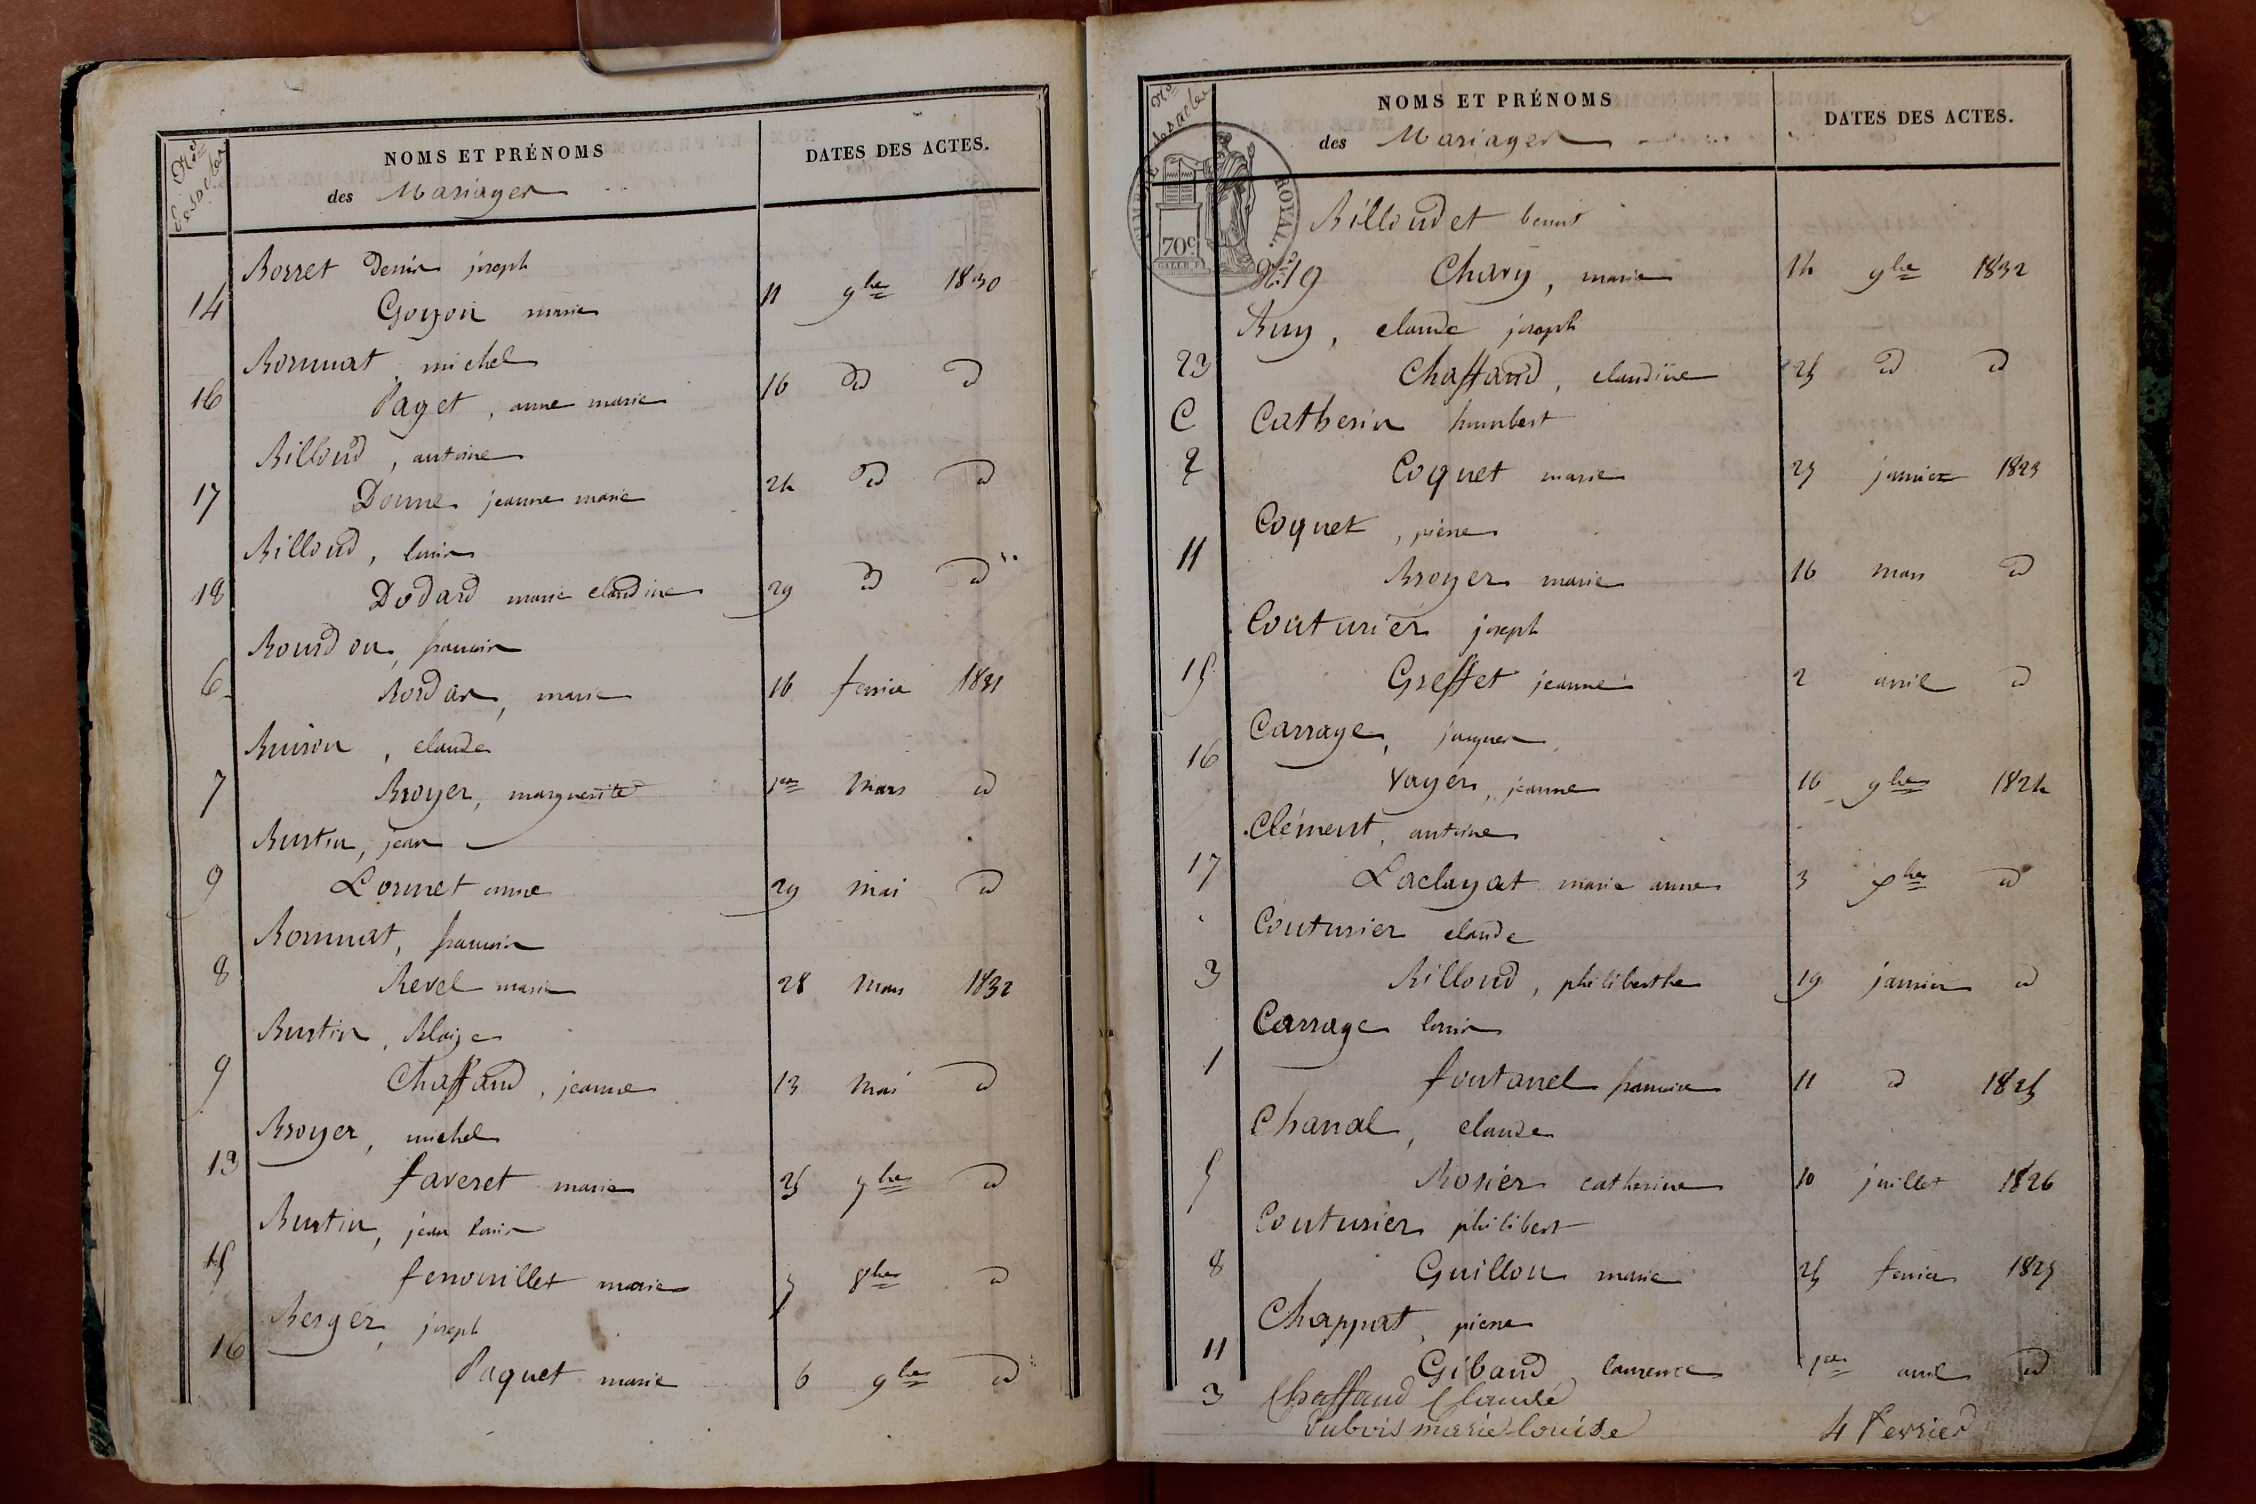 Nos des actes
NOMS ET PRÉNOMS
des Mariages
DATES DES ACTES.
Borset Denis joseph
14 Goyon marie 11 9bre 1830
Bornuat michel
16 Paget, anne marie 16 d d
Billoud, antoine
17 Donne jeanne marie 24 d d
Billoud, louis
18 Dodard marie claudine 29 d d
Bourdon, francois
6 Bordas, marie 16 fevrier 1831
Buison, claude
7 Broyer, marguerite 1er Mars d
Bustin, jean
9 Lornet anne 29 mai d
Bornuat, francois
8 Revel marie 28 Mars 1832
Bustin, Blaize
9 Chaffaud, jeanne 13 Mai d
Broyer, michel
13 faveret marie 25 7bre d
Bustin, jean louis
15 fenouillet marie 5 8bre d
Berger, joseph
16 Paquet marie 6 9bre d
Nos des actes
NOMS ET PRÉNOMS
des Mariages
DATES DES ACTES.
TIMBRE ROYAL.
70c
Billoudet benoit
No 19 Chary, marie 14 9bre 1832
Buy, claude joseph
23 Chaffaud, claudine 25 d d
C Catherin humbert
2 Coquet marie 23 janvier 1823
Coquet, pierre
11 Broyer marie 16 mars d
Couturier joseph
15 Greffet jeanne 2 avril d
Carrage, jacques
16 Vayer, jeanne 16 9bre 1824
Clément, antoine
17 Laclayat marie anne 3 xbre d
Couturier claude
3 Billoud, philiberthe 19 janvier d
Carrage louis
1 fontanel francoise 11 d 1825
Chanal, claude
5 Rosier catherine 10 juillet 1826
Couturier philibert
8 Guillon marie 25 fevrier 1829
Chappat, pierre
11 Gibaud laurence 1er avril d
3 Chaffaud Claude
Dubois marie louise 4 fevrier